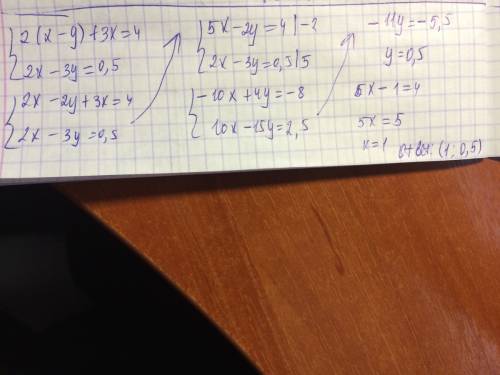 2(x-y)+3x=4
2x-3y=0,5
2x-2y+3x=4
2x-3y=0,5
5x-2y=4|-2
2x-3y=0,5|5
-10x+4y=-8
10x-15y=2,5
-11y=-5,5
y=0,5
5x-1=4
5x=5
x=1
Ответ: (1; 0,5)